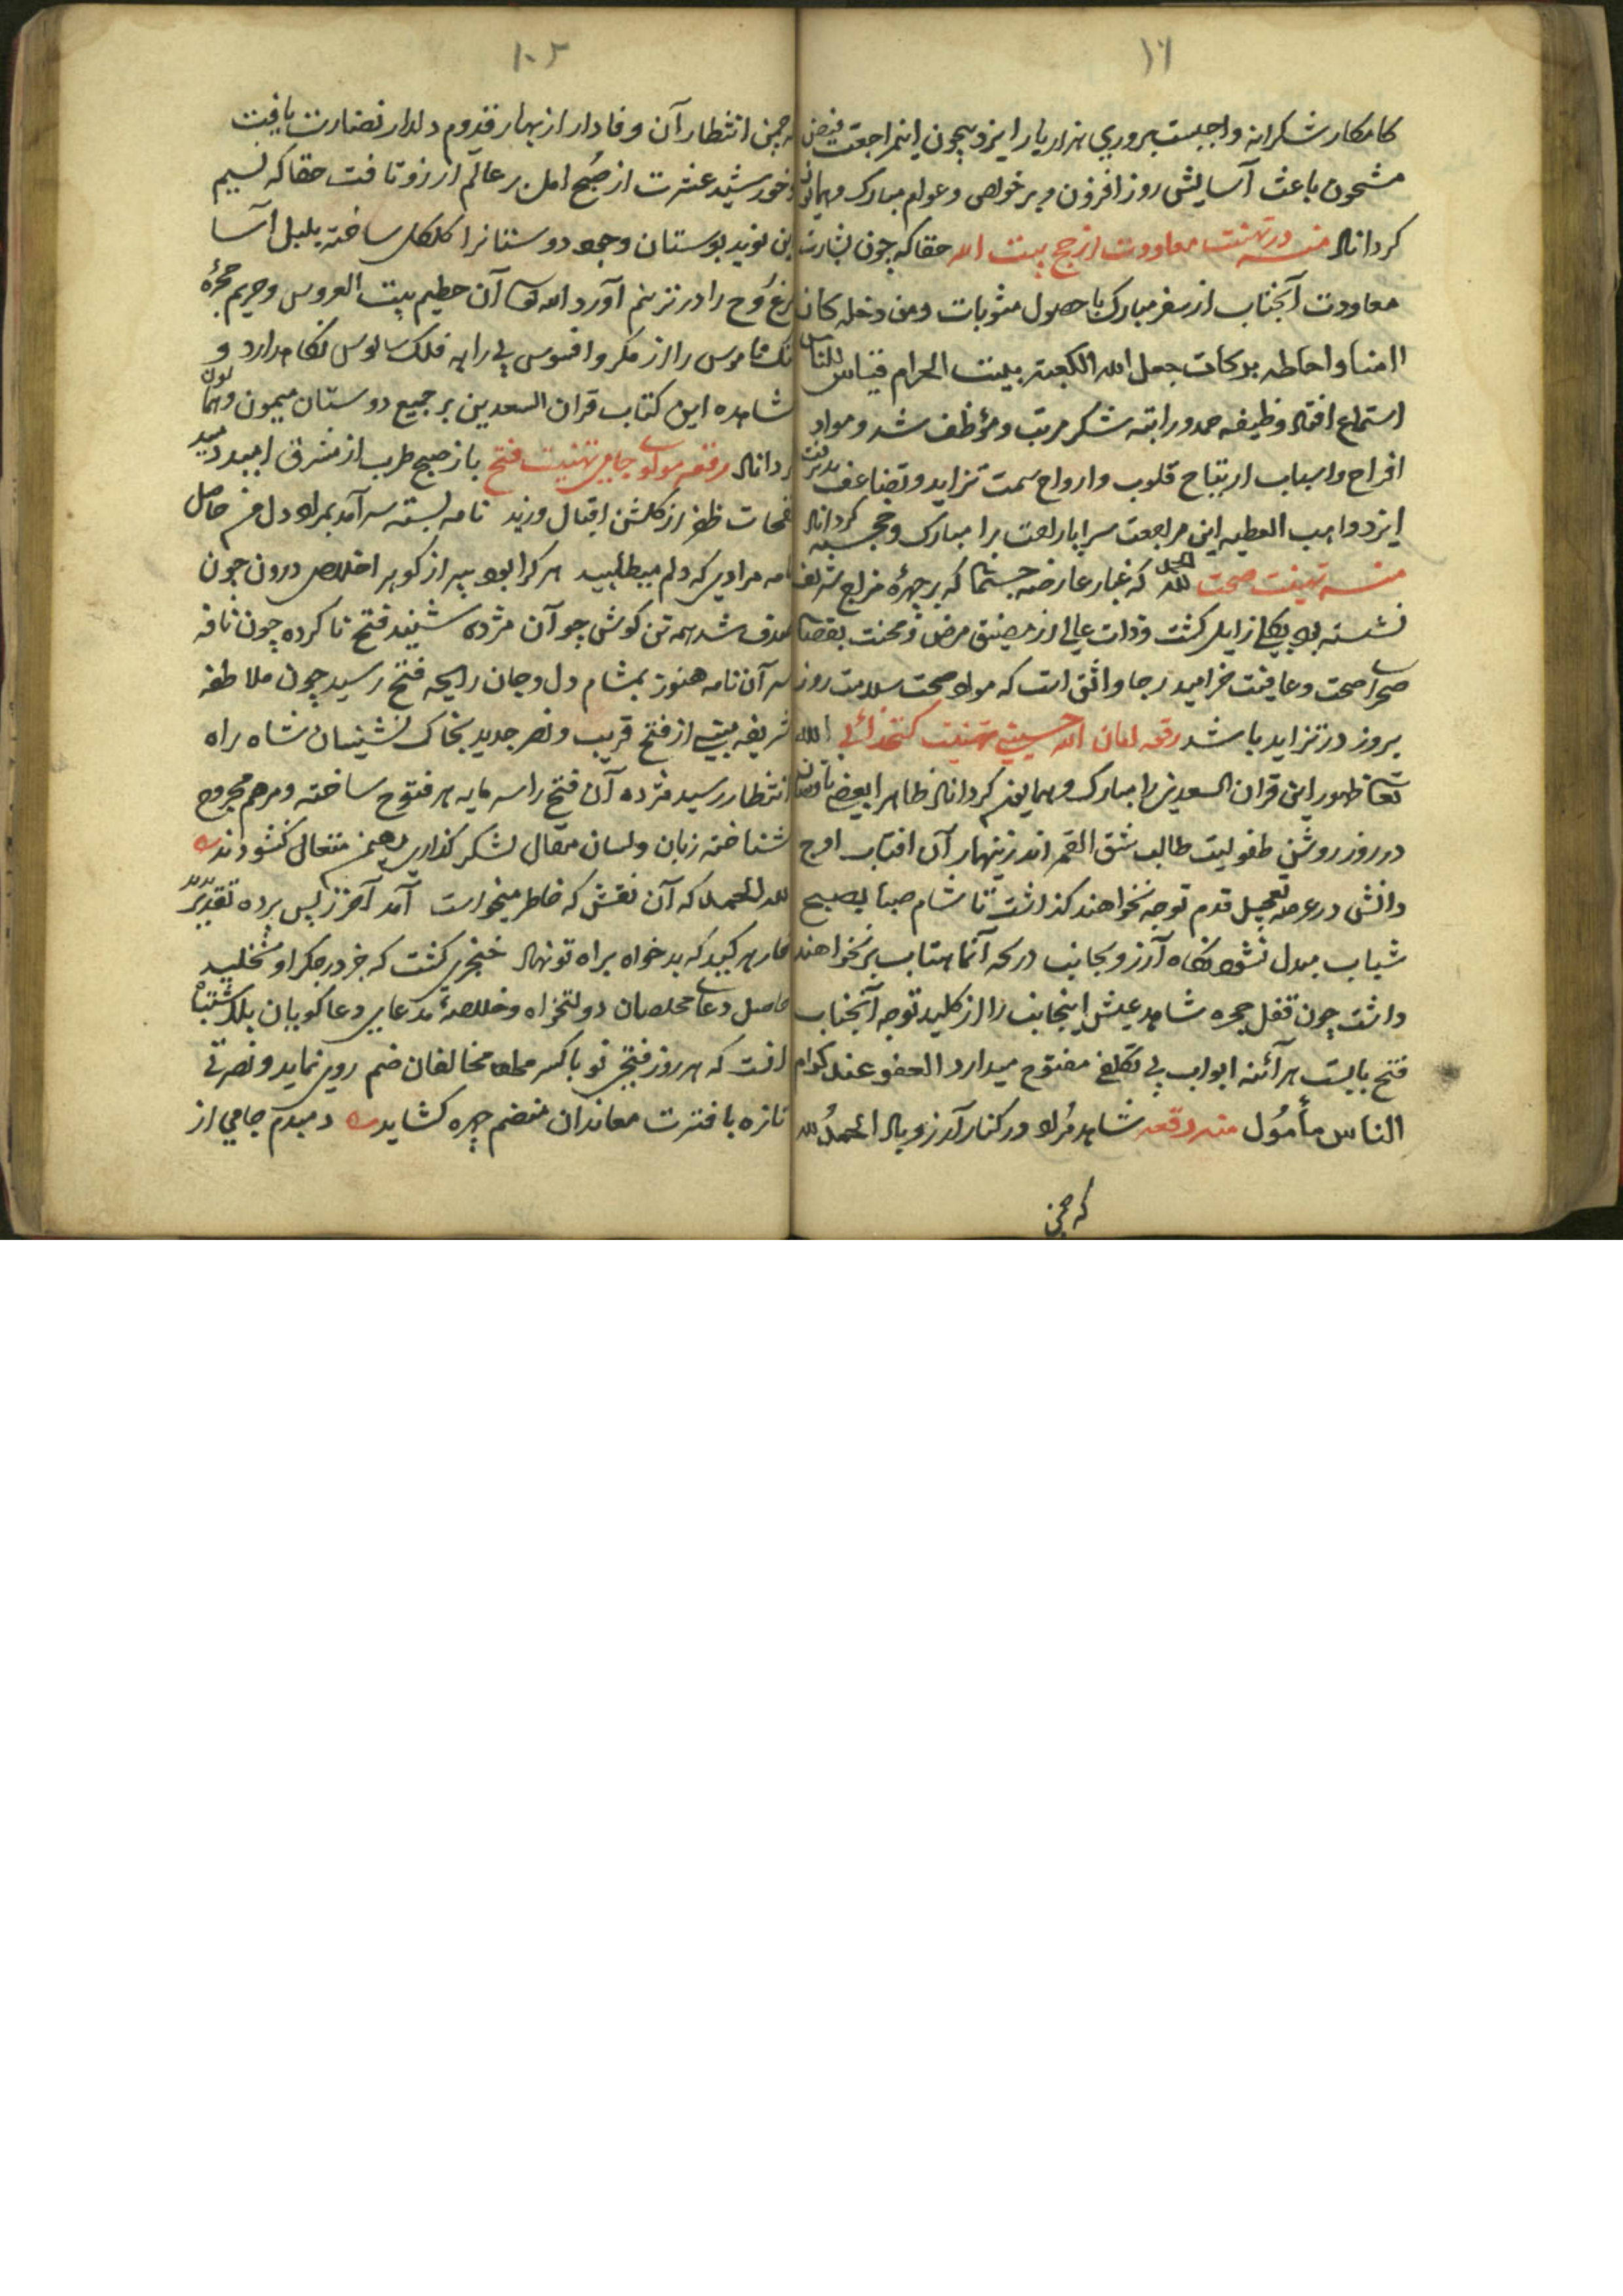 ۱۶
کامکار شکرانه واجبست پروری هزار یار ایزد بیچون اینمراجعت فیض
مشحون باعث آسایش روز افزون و بر خواص و عوام مبارک و همایون
کرداناد منه در تهنیت معاودت از حج بیت الله حقا که چون بشارت
معاودت آنجناب از سفر مبارک با حصول مثوبات ومن دخله کان
امنا و احاطه برکات جعل الله الکعبة بیت الحرام قیاس للناس
استماع افتاد وظیفه حمد و راتبه شکر مرتب و مؤظف شد و مواد
افراح و اسباب ارتیاح قلوب و ارواح سمت تزاید و تضاعف پذیرفت
ایزد واهب العطیه این مراجعت سراپا راحت را مبارک و خجسته کرداناد
منه تهنیت صحت الحمد لله که غبار عارضه جسمی که بر چهرهٔ مزاج شریف
نشسته بود بکلی زایل کشت و ذات عالی از مضیق مرض و محنت بفضای
صحرای صحت و عافیت خرامید رجا واثق است که مواد صحت سلامت روز
بروز در تزاید باشد رقعه امان الله حسینی تهنیت کتخدائی الله
تعا ظهور این قران السعدین را مبارک و همایون کرداناد ظاهرا بعضی
در روز روشن طفولیت طالب شق القمر اند زینهار آن افتاب اوج
دانش در عرصه تعجیل قدم توجه نخواهند کذاشت تا شام صبا بصبح
شباب مبدل نشود نکاه آرزو بجانب دریچه آنماهتاب بر نخواهند
داشت چون قفل حجره شاهد عیش اینجانب را از کلید توجه آنجناب
فتح بابست هر آئنه ابواب بی تکلفی مفتوح میدارد العفو عند کرام
الناس مأمول منه رقعه شاهد مراد در کنار آرزو باد الحمد لله
که چمن
۱۰۲
که چمن انتظار آن وفادار از بهار قدوم دلدار نضارت یافت
و خورشید عشرت از صبح امل بر عالم آرزو تافت حقا که نسیم
این نوید بوستان وجود دوستانرا کل کل ساخته بلبل آسا
مرغ روح را در ترنم آورد الله تعا آن حطیم بیت العروس و حریم حجرهٔ
ننک و ناموس را از مکر و افسوس بی رایه فلک سالوس نکاهدارد و
مشاهده این کتاب قران السعدین بر جمیع دوستان میمون و همایون
کرداناد رقعه مولوی جامی تهنیت فتح باز صبح طرب از مشرق امید دمید
نفحات ظفر از کلشن اقبال وزید نامه بسته سر آمد بمراد دل من حاصل
نامه مرادی که دلم میطلبید هر کرا بود پر از کوهر اخلاص درون چون
صدف شد همه تن کوش چو آن مژده شنید فتح نا کرده چون نافه
سر آن نامه هنوز بمشام دل و جان رایحه فتح رسید چون ملاطفه
شریفه مبنی از فتح قریب و نصر جدید بخاک نشینان شاه راه
انتظار رسید مژده آن فتح را سرمایه هر فتوح ساخته و مرهم مجروح
شناخته زبان و لسان مقال بشکر کذاری مهیمن متعال کشودند
لله الحمد که آن نقش که خاطر میخواست آمد آخر ز پس پرده تقدیر پدید
خار هر کید که بد خواه براه تو نهاد خنجری کشت که جز در جکر او نخلید
حاصل دعای مخلصان دولتخواه و خلاصهٔ مدعای دعا کویان بلا اشتباه
انست که هر روز فتحی نو با کسر مطلع مخالفان ضم روی نماید و نصرتی
تازه با فترت معاندان منضم چهره کشاید دمبدم جامی از